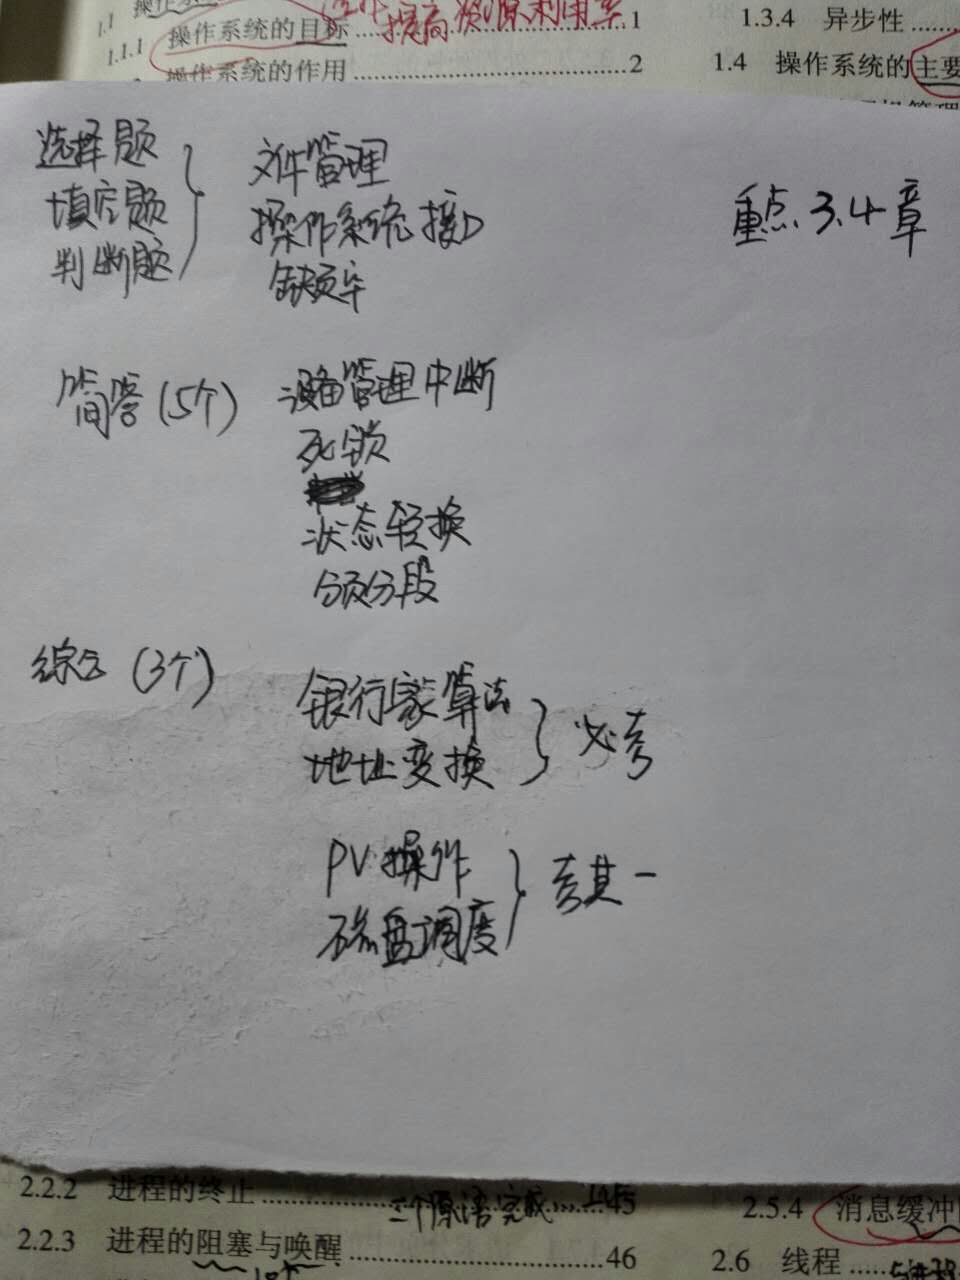 1.1 操作系
1.1.1 操作系统的目标 提高资源利用率 1
操作系统的作用 2
1.3.4 异步性
1.4 操作系统的主要
选择题
填空题
判断题
文件管理
操作系统接口
缺页率
重点 3.4章
简答(5个)
设备管理中断
死锁
状态转换
分页分段
综合(3个)
银行家算法
地址变换
必考
PV操作
磁盘调度
考其一
2.2.2 进程的终止 45
三个原语完成
2.2.3 进程的阻塞与唤醒 46
2.5.4 消息缓冲
2.6 线程